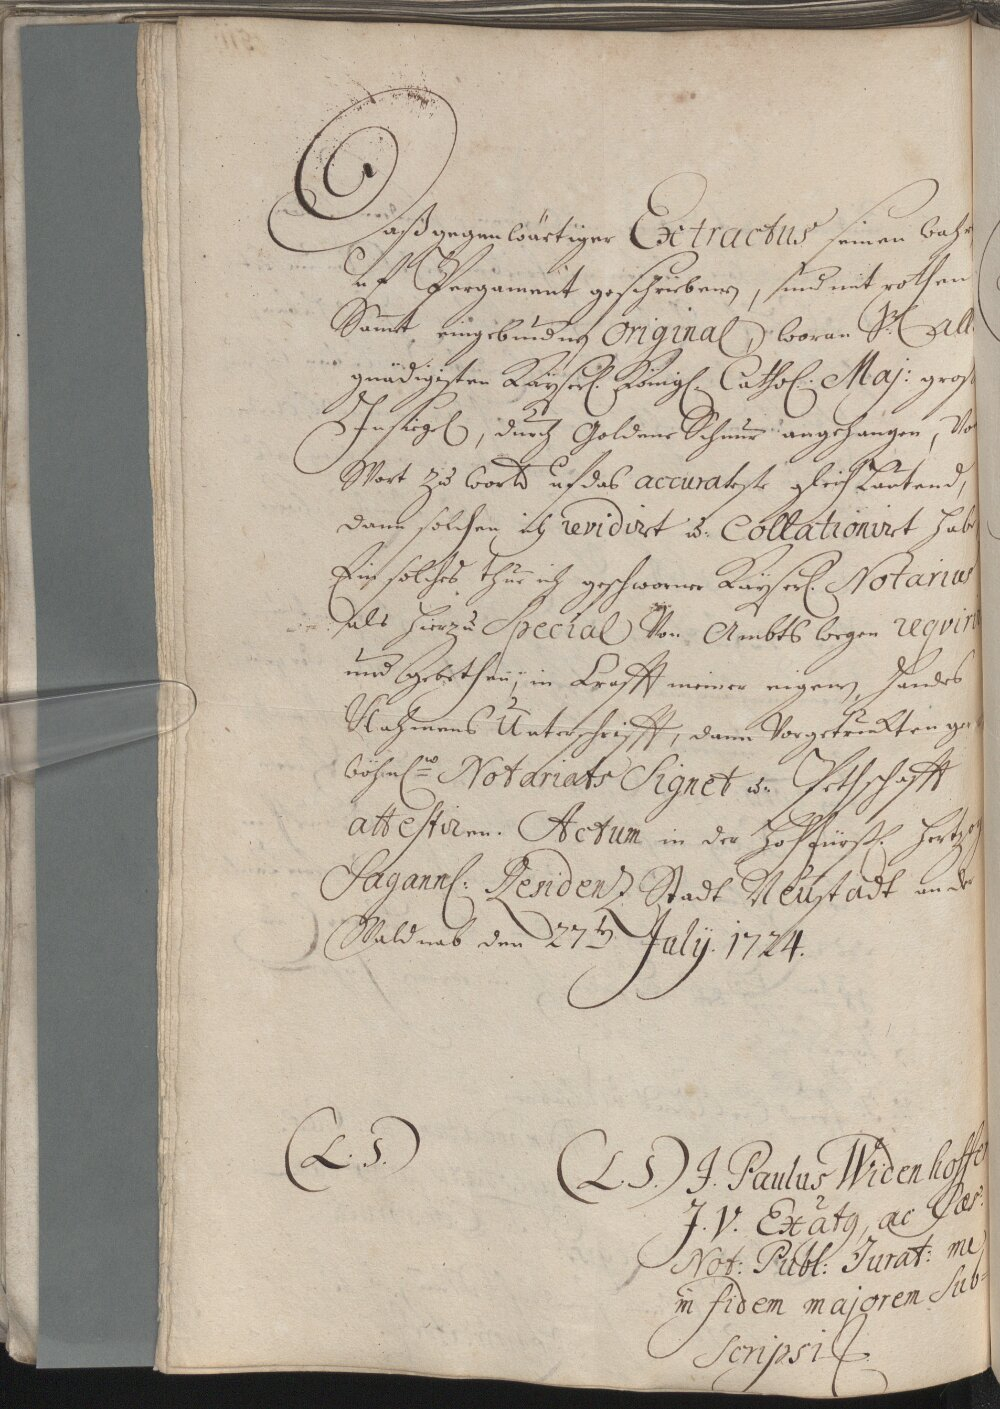 Daß gegenwärtiger Extractus seinen wahr
uf Pergament geschriebenen, und mit rothen
Sammt eingebunden Original, woran Ihro All
gnädigsten Kayserl. Königl. Cathol: Maj: gros
Insiegel, durch Goldene Schnur angehangen, Vo
Wort zu Wortt uf das accurateste gleich Lautend,
dann solchen ich revidirt u. Collationirt hab
Ein solches thue ich geschworner Kayserl. Notarius
als hierzu Special Von Ambts wegen requiri
und Gebethen, in Krafft meiner eigenen Handes
Nahmens Unterschrifft, dann Vorgetruckten ge
wöhnl. Notariats Signet u. Pethschafft
attestiren. Actum in der Hochfürstl. Hertzog
Saganl: Residenz Stadt Neustadt an der
Waldnab den 27ten July. 1724.
(L. S.)
(L. S.) J. Paulus Widenhoffer
J. V. Exatq, ac Caes:
Not: Publ: Jurat: me
in fidem majorem sub-
scripsi